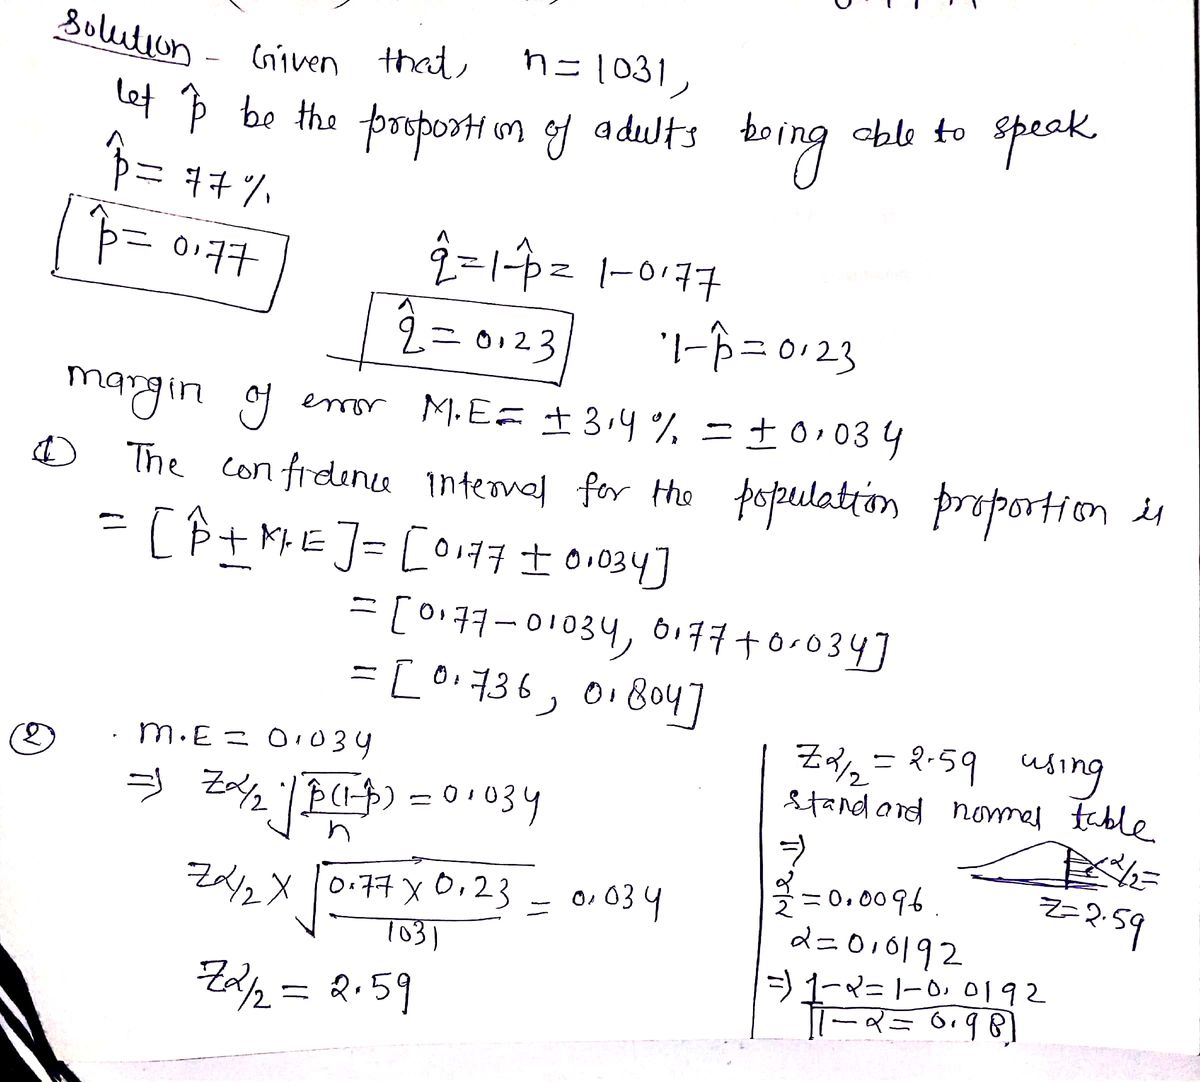 Solution - Given that, n = 1031,
Let p̂ be the proportion of adults being able to speak
p̂ = 77%
p̂ = 0.77
q̂ = 1-p̂ = 1-0.77
q̂ = 0.23 1-p̂ = 0.23
margin of error M.E = ± 3.4% = ± 0.034
① The confidence interval for the population proportion is
= [p̂ ± M.E] = [0.77 ± 0.034]
= [0.77-0.034, 0.77+0.034]
= [0.736, 0.804]
② M.E = 0.034
=> Zα/2 √(p̂(1-p̂)/n) = 0.034
Zα/2 × √(0.77 × 0.23/1031) = 0.034
Zα/2 = 2.59
Zα/2 = 2.59 using
standard normal table
=>
α/2 =
Z = 2.59
α/2 = 0.0096
α = 0.0192
=> 1-α = 1-0.0192
1-α = 0.98